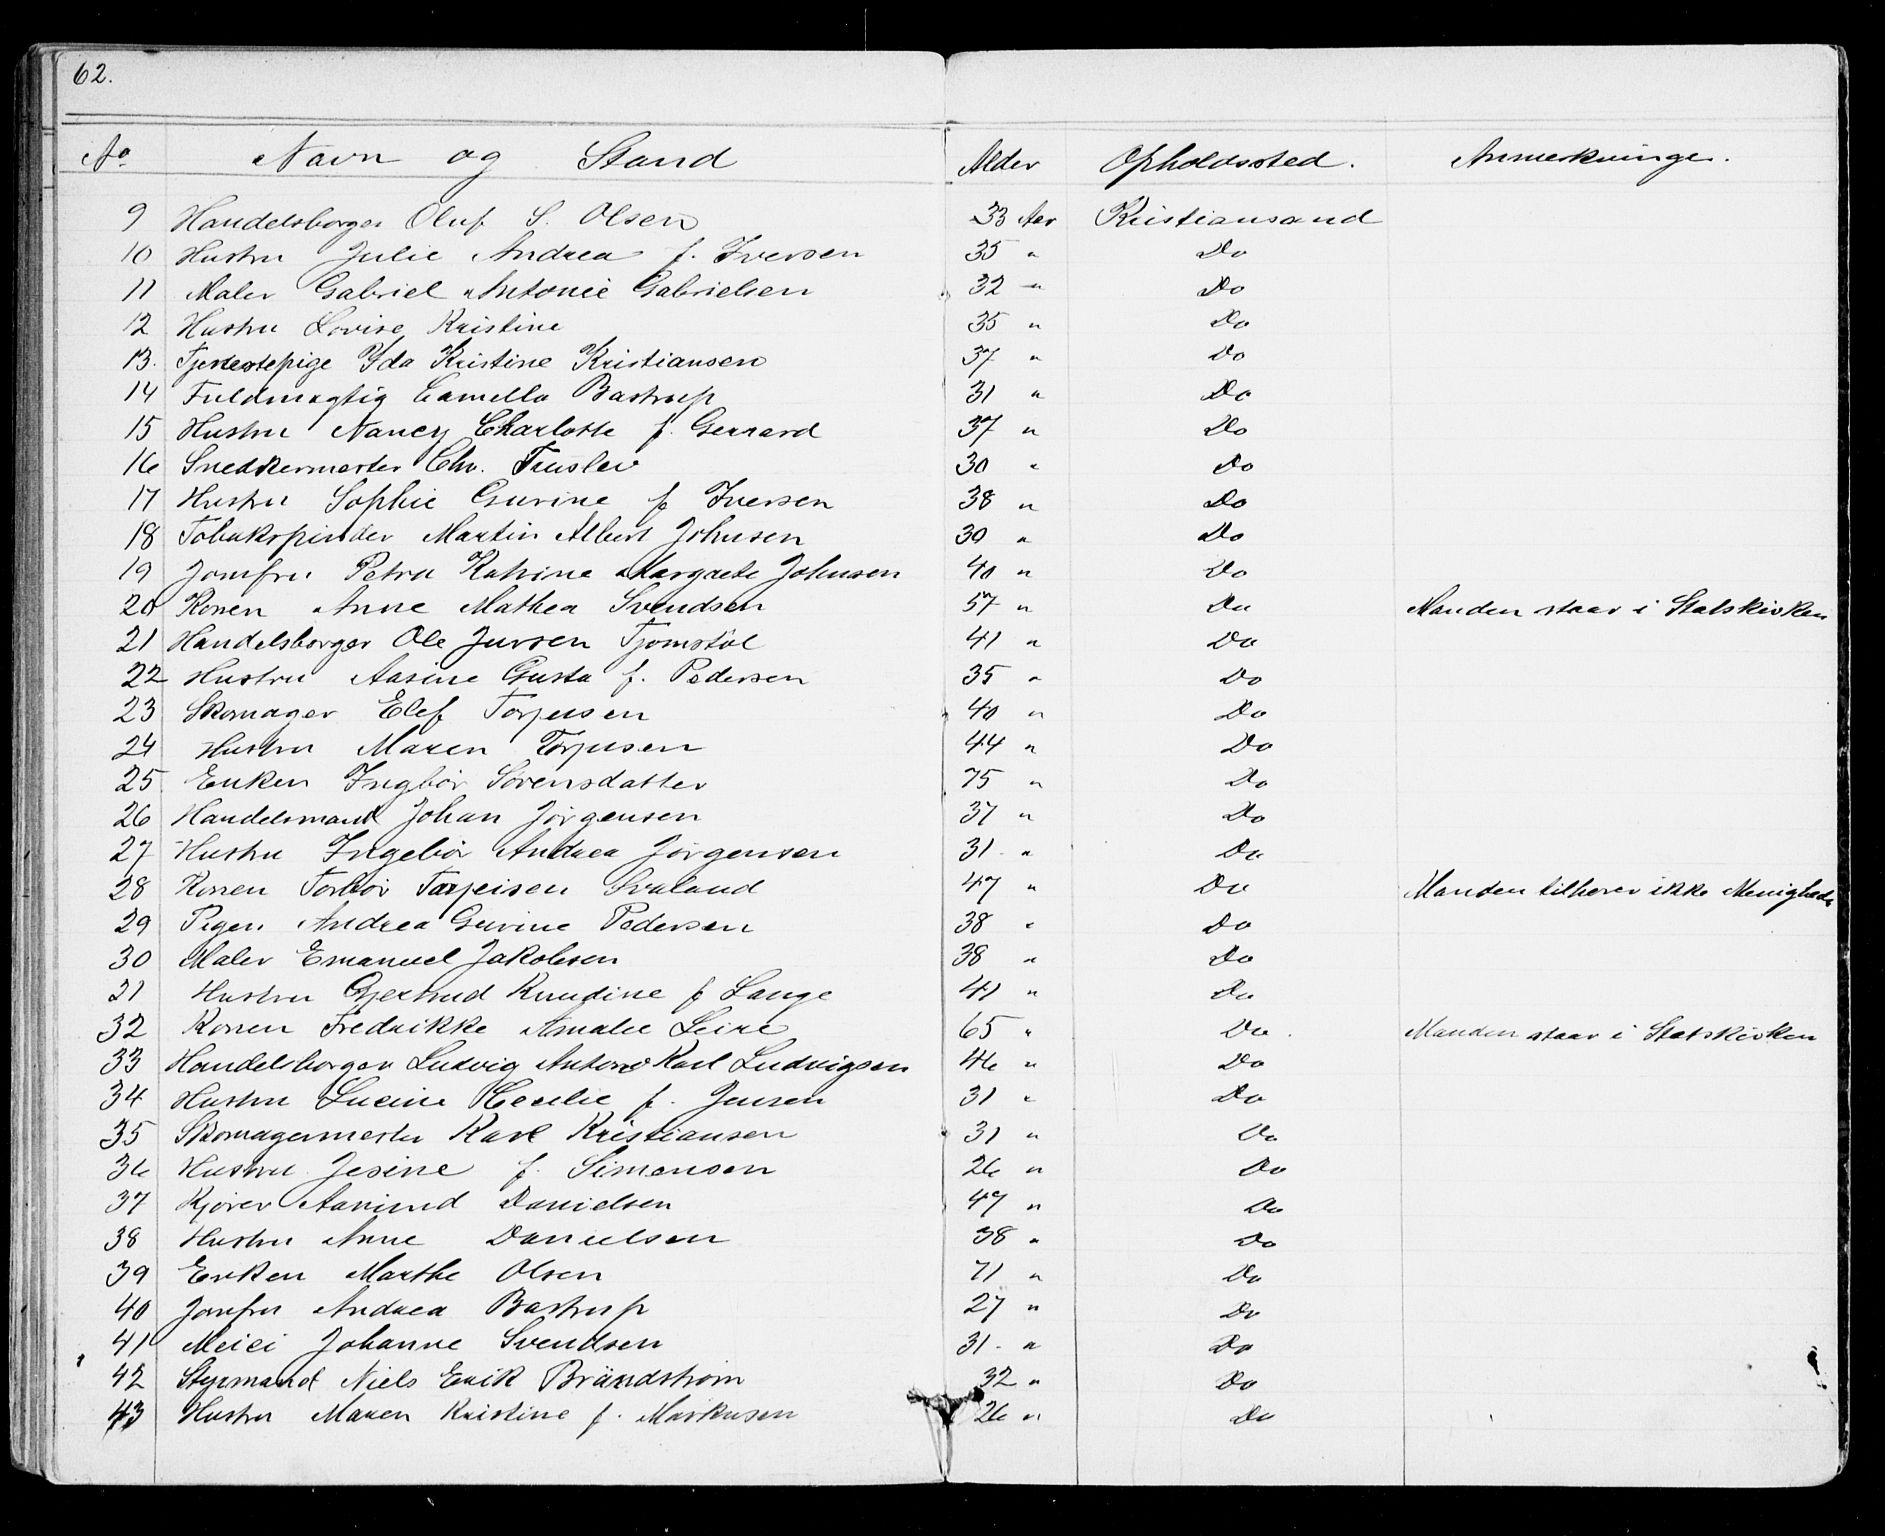 62.
No Navn og Stand Alder Opholdssted. Anmerkninger.
9 Handelsborger Oluf S. Olsen 33 Aar Kristiansand
10 Hustru Julie Andrea f. Iversen 35 " Do
11 Maler Gabriel Antonie Gabrielsen 32 " Do
12 Hustru Lovise Kristine 35 " Do
13. Tjenestepige Ida Kristine Kristiansen 37 " Do
14 Fuldmægtig Camella Bastrup 31 " Do
15 Hustru Nancy Charlotte f. Gerrard 37 " Do
16 Snedkermester Chr. Truslev 30 " Do
17 Hustru Sophie Gurine f Iversen 38 " Do
18 Tobakspinder Martin Albert Johnsen 30 " Do
19 Jomfru Petra Katrine Margrete Johnsen 40 " Do
20 Konen Anne Mathea Svendsen 57 " Do Manden staar i Statskirken
21 Handelsborger Ole Jursen Tjomstøl 41 " Do
22 Hustru Aasine Gusta f. Pedersen 35 " Do
23 Skomager Elef Torjusen 40 " Do
24 Hustru Maren Torjusen 44 " Do
25 Enken Ingbør Sørensdatter 75 " Do
26 Handelsmand Johan Jørgensen 37 " Do
27 Hustru Ingebør Andrea Jørgensen 31. " Do
28 Konen Torbør Torjeisen Svaland 47 " Do Manden tilhører ikke Menighede
29 Pigen Andrea Gurine Pedersen 38 " Do
30 Maler Emanuel Jakobsen 38 " Do
21 Hustru Gjertrud Knudine f Lange 41 " Do
32 Konen Fredrikke Amalie Leire 65 " Do. Manden staar i Statskirken
33 Handelsborger Ludvig Anton Karl Ludvigsen 46 " Do
34 Hustru Lucine Cecilie f. Jensen 31 " Do
35 Skomagermester Karl Kristiansen 31 " Do
36 Hustru Jesine f. Simensen 26 " Do
37 Kjører Aanund Danielsen 47 " Do
38 Hustru Anne Danielsen 38 " Do
39 Enken Marthe Olsen 71 " Do
40 Jomfru Andrea Bastrup 27 " Do
41 Meiei Johanne Svendsen 31. " Do
42 Styrmand Niels Erik Brändstrøm 32 " Do
43 Hustru Maren Kristine f. Markusen 26 " Do